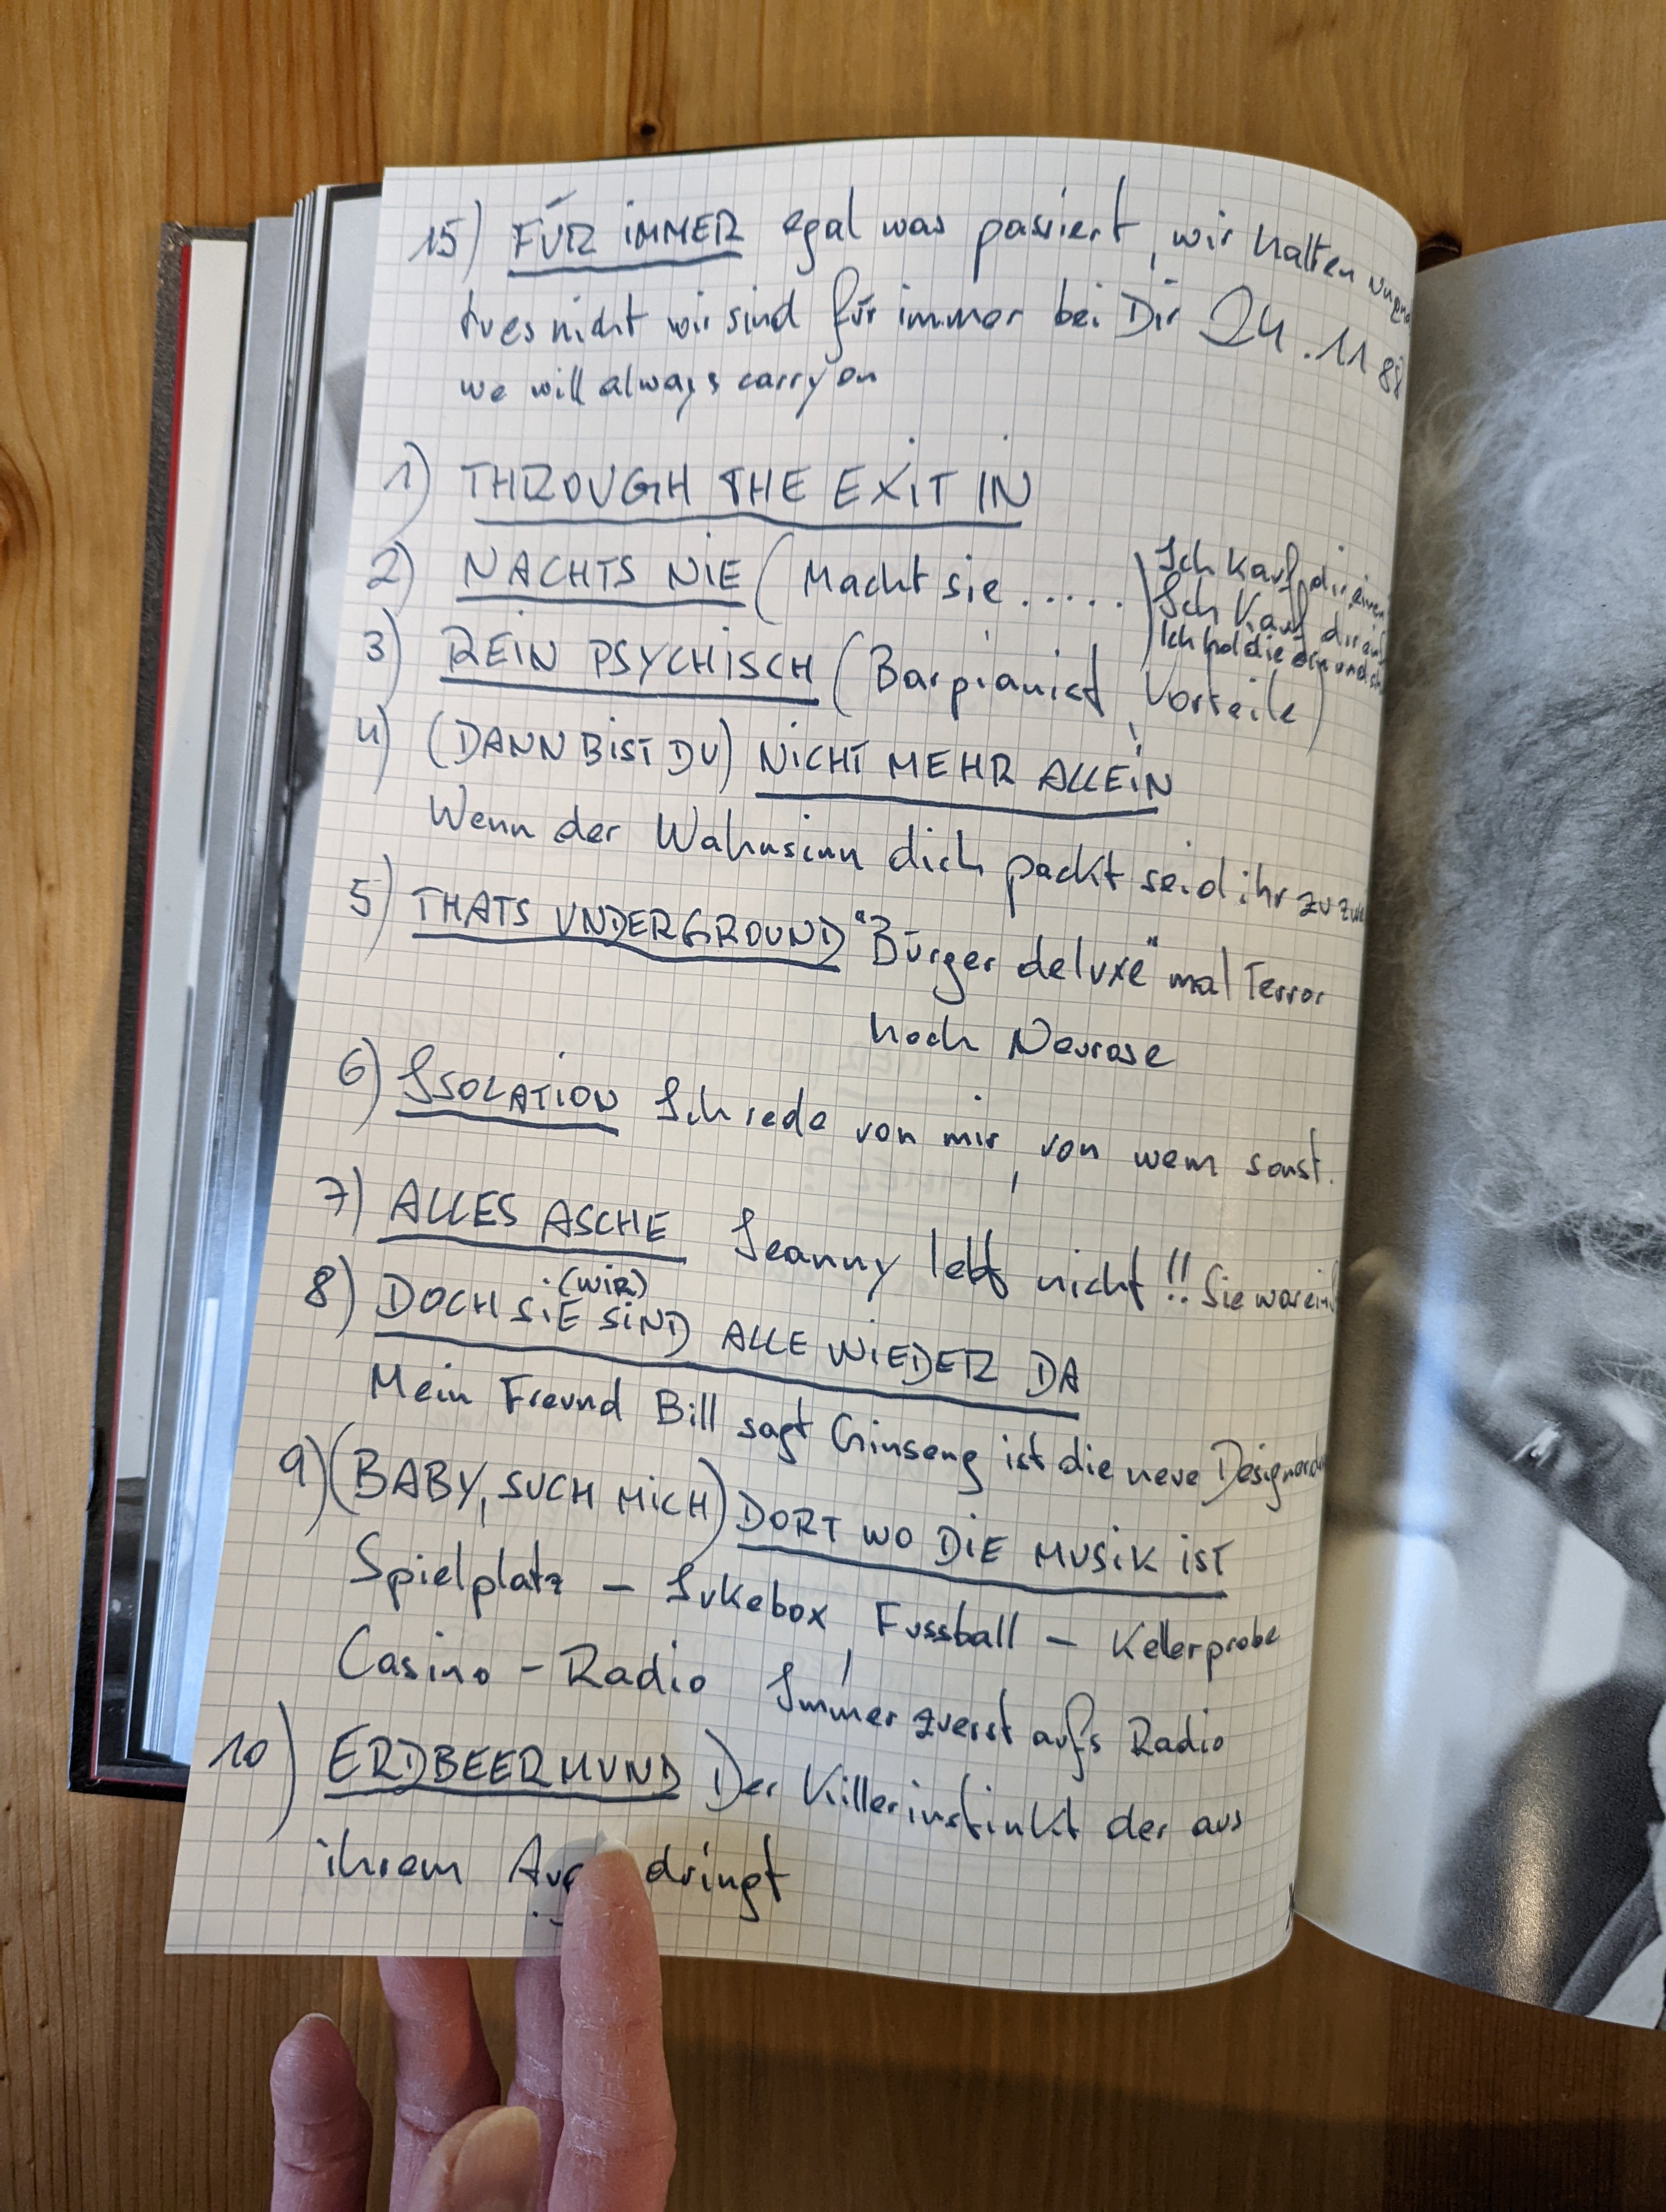 15) FÜR IMMER egal was passiert, wir halten
tues nicht wir sind für immer bei Dir 24.11.88
we will always carry on
1) THROUGH THE EXIT IN
2) NACHTS NIE (Macht sie .....) Ich kauf dir einen
Ich kauf dir ein
Ich hol die
3) REIN PSYCHISCH (Barpianist, Vorteile)
4) (DANN BIST DU) NICHT MEHR ALLEIN
Wenn der Wahnsinn dich packt seid ihr zu
5) THATS UNDERGROUND "Bürger deluxe" mal Terror
hoch Neurose
6) ISOLATION Ich rede von mir, von wem sonst.
7) ALLES ASCHE Jeanny lebt nicht!! Sie war
(WIR)
8) DOCH SIE SIND ALLE WIEDER DA
Mein Freund Bill sagt Ginseng ist die neue
9) (BABY, SUCH MICH) DORT WO DIE MUSIK IST
Spielplatz – Jukebox, Fussball – Kellerprobe
Casino – Radio Immer zuerst aufs Radio
10) ERDBEERMUND Der Killerinstinkt der aus
ihrem dringt